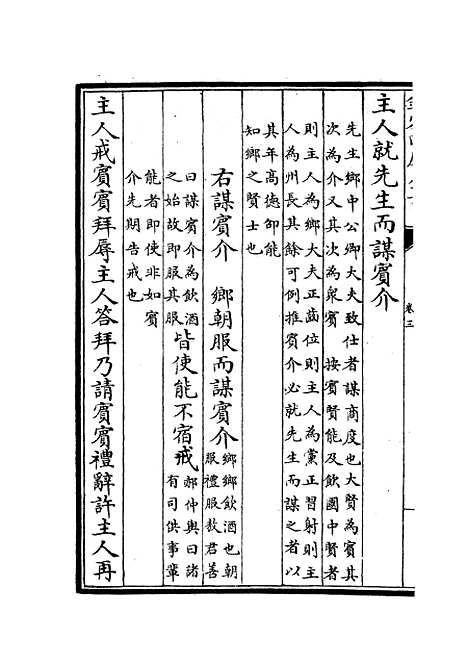 卷三
主人就先生而謀賓介
先生鄉中公卿大夫致仕者謀商度也大賢為賓其
次為介又其次為衆賓 按賓賢能及飲國中賢者
則主人為鄉大夫正齒位則主人為黨正習射則主
人為州長其餘可例推賓介必就先生而謀之者以
其年高德卲能
知鄉之賢士也
右謀賓介 鄉朝服而謀賓介鄉鄉飲酒也朝服禮服敖君善
曰謀賓介為飲酒之始故即服其服皆使能不宿戒郝仲輿曰諸有司供事輩
能者即使非如賓
介先期告戒也
主人戒賓賓拜辱主人答拜乃請賓賓禮辭許主人再